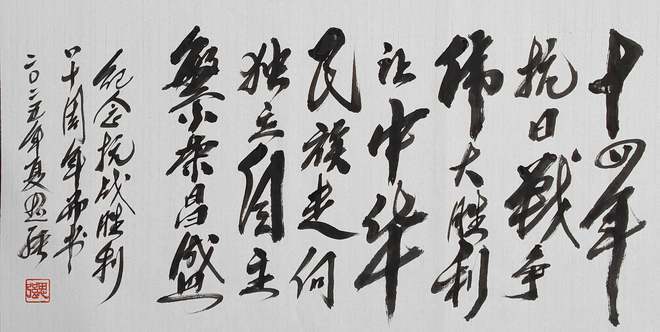 十四年
抗日战争
伟大胜利
让中华
民族走向
独立自主
繁荣昌盛
纪念抗战胜利
八十周年而书
二〇二五年夏